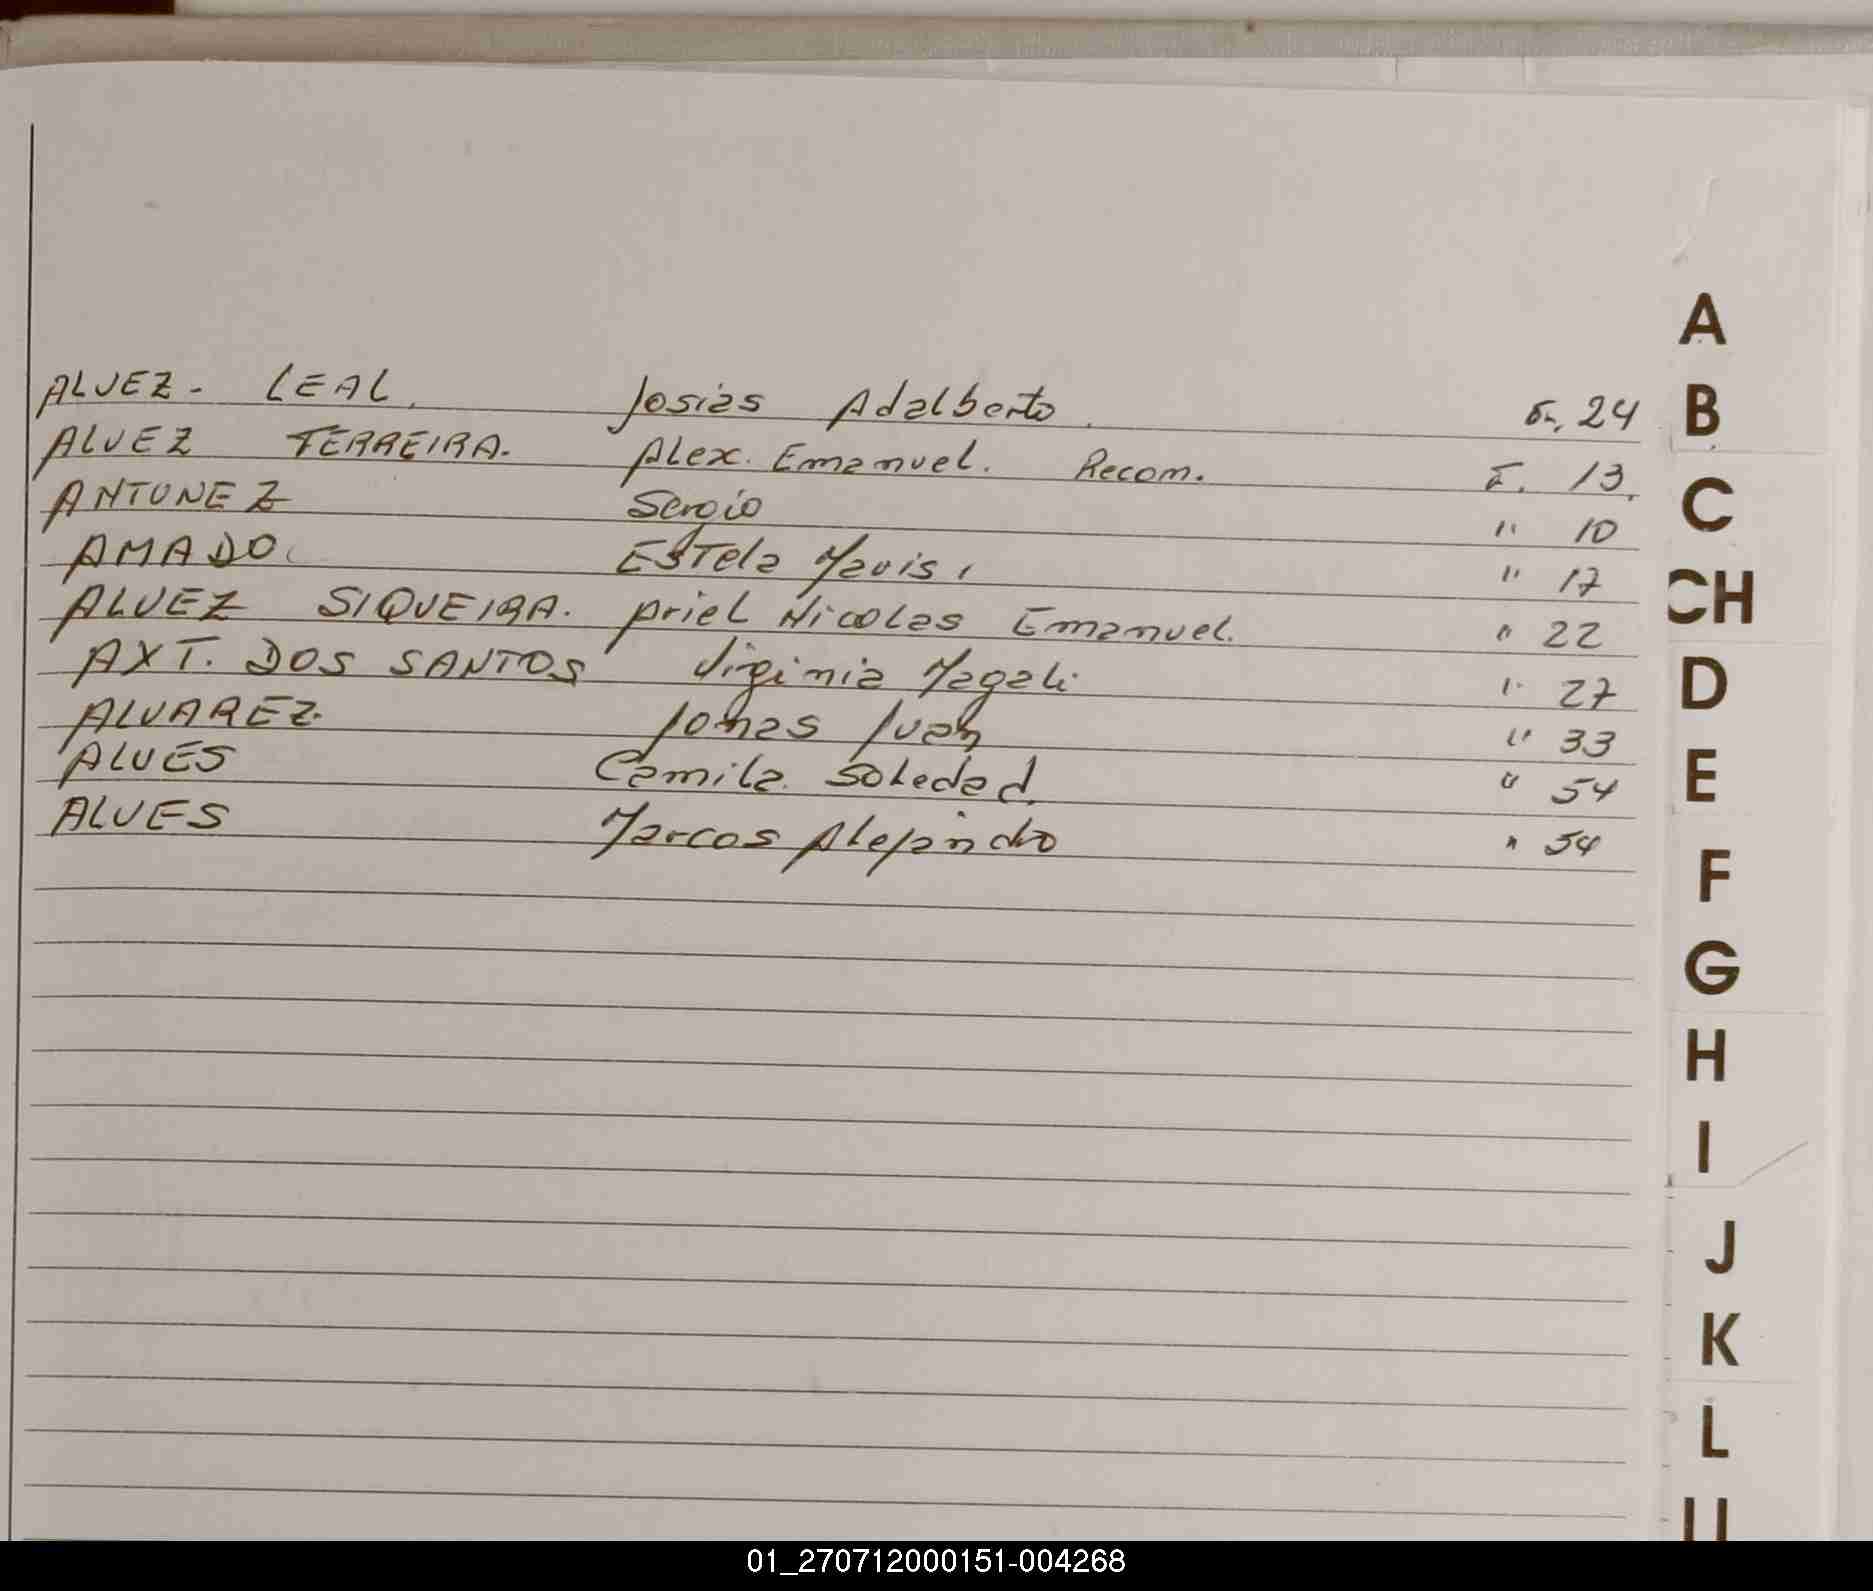 ALVEZ - LEAL. Josias Adalberto. Fº. 24
ALVEZ TERREIRA. Alex. Emanuel. Recom. F. 13.
ANTUNEZ Sergio " 10
AMADO Estela Mavis " 17
ALVEZ SIQUEIRA. Ariel Nicolas Emanuel. " 22
AXT. DOS SANTOS Virginia Magali " 27
ALVAREZ. Jonas Ivan " 33
ALVES Camila Soledad. " 54
ALVES Marcos Alejandro " 54
A
B
C
CH
D
E
F
G
H
I
J
K
L
01_270712000151-004268